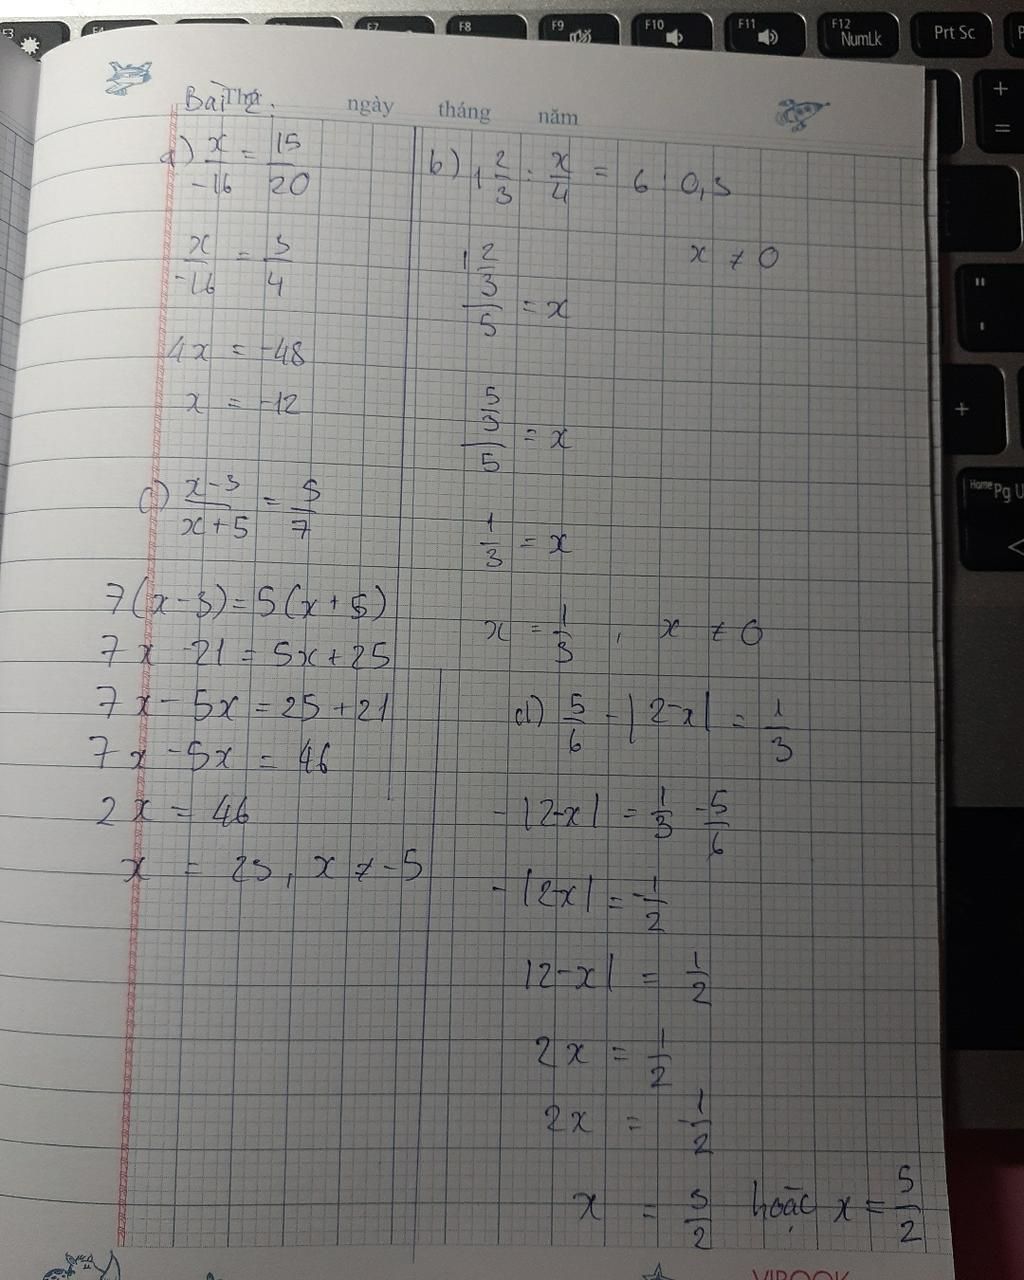 F7 F8 F9 F10 F11 F12 NumLk Prt Sc
Home Pg U
Bài 2.
Thứ ngày tháng năm
a) x/-16 = 15/20
x/-16 = 3/4
4x = -48
x = -12
c) x-3/x+5 = 5/7
7(x-3) = 5(x+5)
7x -21 = 5x+25
7x - 5x = 25+21
7x - 5x = 46
2x = 46
x = 23, x ≠ -5
b) 1 2/3 : x/4 = 6 : 0,3
x ≠ 0
1 2/3 / 5 = x
5/3 / 5 = x
1/3 = x
x = 1/3 , x ≠ 0
d) 5/6 - |2-x| = 1/3
- |2-x| = 1/3 - 5/6
- |2-x| = -1/2
|2-x| = 1/2
2x = 1/2
2x = -1/2
x = 3/2 hoặc x = 5/2
VIBOOK